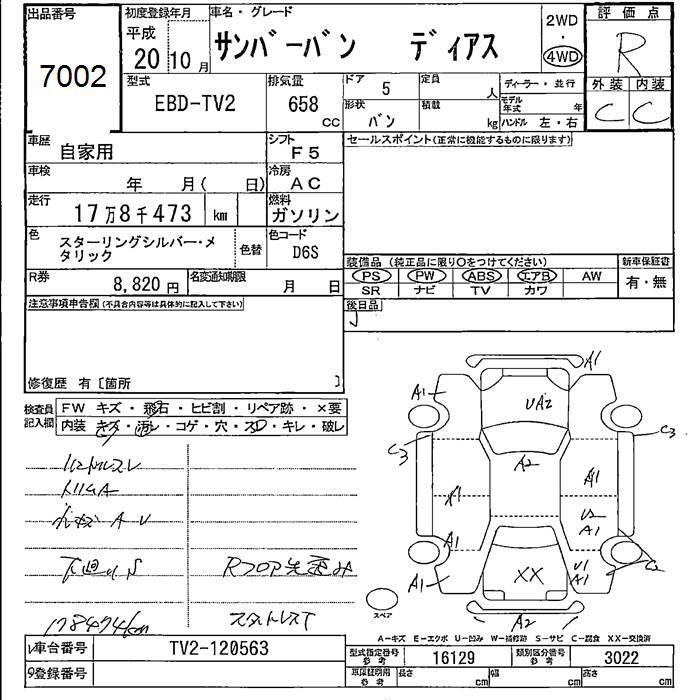 出品番号
7002
初度登録年月
平成
20 10 月
車名・グレード
サンバーバン ディアス
2WD
・
4WD
評価点
R
型式
EBD-TV2
排気量
658
CC
ドア 5
定員 人
ディーラー・並行
形状
バン
積載 kg
モデル年式 年
ハンドル 左・右
外装 内装
C C
車歴
自家用
シフト
F5
セールスポイント(正常に機能するものに限ります)
車検
年 月( 日)
冷房
AC
走行
17万8千473 km
燃料
ガソリン
色
スターリングシルバー・メタリック
色替
色コード
D6S
装備品(純正品に限り○をつけてください)
新車保証書
PS PW ABS エアB AW
SR ナビ TV カワ
有・無
R券
8,820 円
名変通知期限
月 日
後日品
注意事項申告欄(不具合内容等は具体的に記入して下さい)
修復歴 有〔箇所 〕
検査員記入欄
FW キズ・飛石・ヒビ割・リペア跡・×要
内装 キズ・汚レ・コゲ・穴・スレ・キレ・破レ
下回りS
178474km
A1
A1
UA2
C3
C3
A2
A1
A1
U2
A1
A1
U1
A1
A1
XX
A2
スペア
A-キズ E-エクボ U-凹み W-補修跡 S-サビ C-腐食 XX-交換済
車台番号
TV2-120563
登録番号
型式指定番号
参考
16129
類別区分番号
参考
3022
車庫証明用
参考
長さ cm
幅 cm
高さ cm